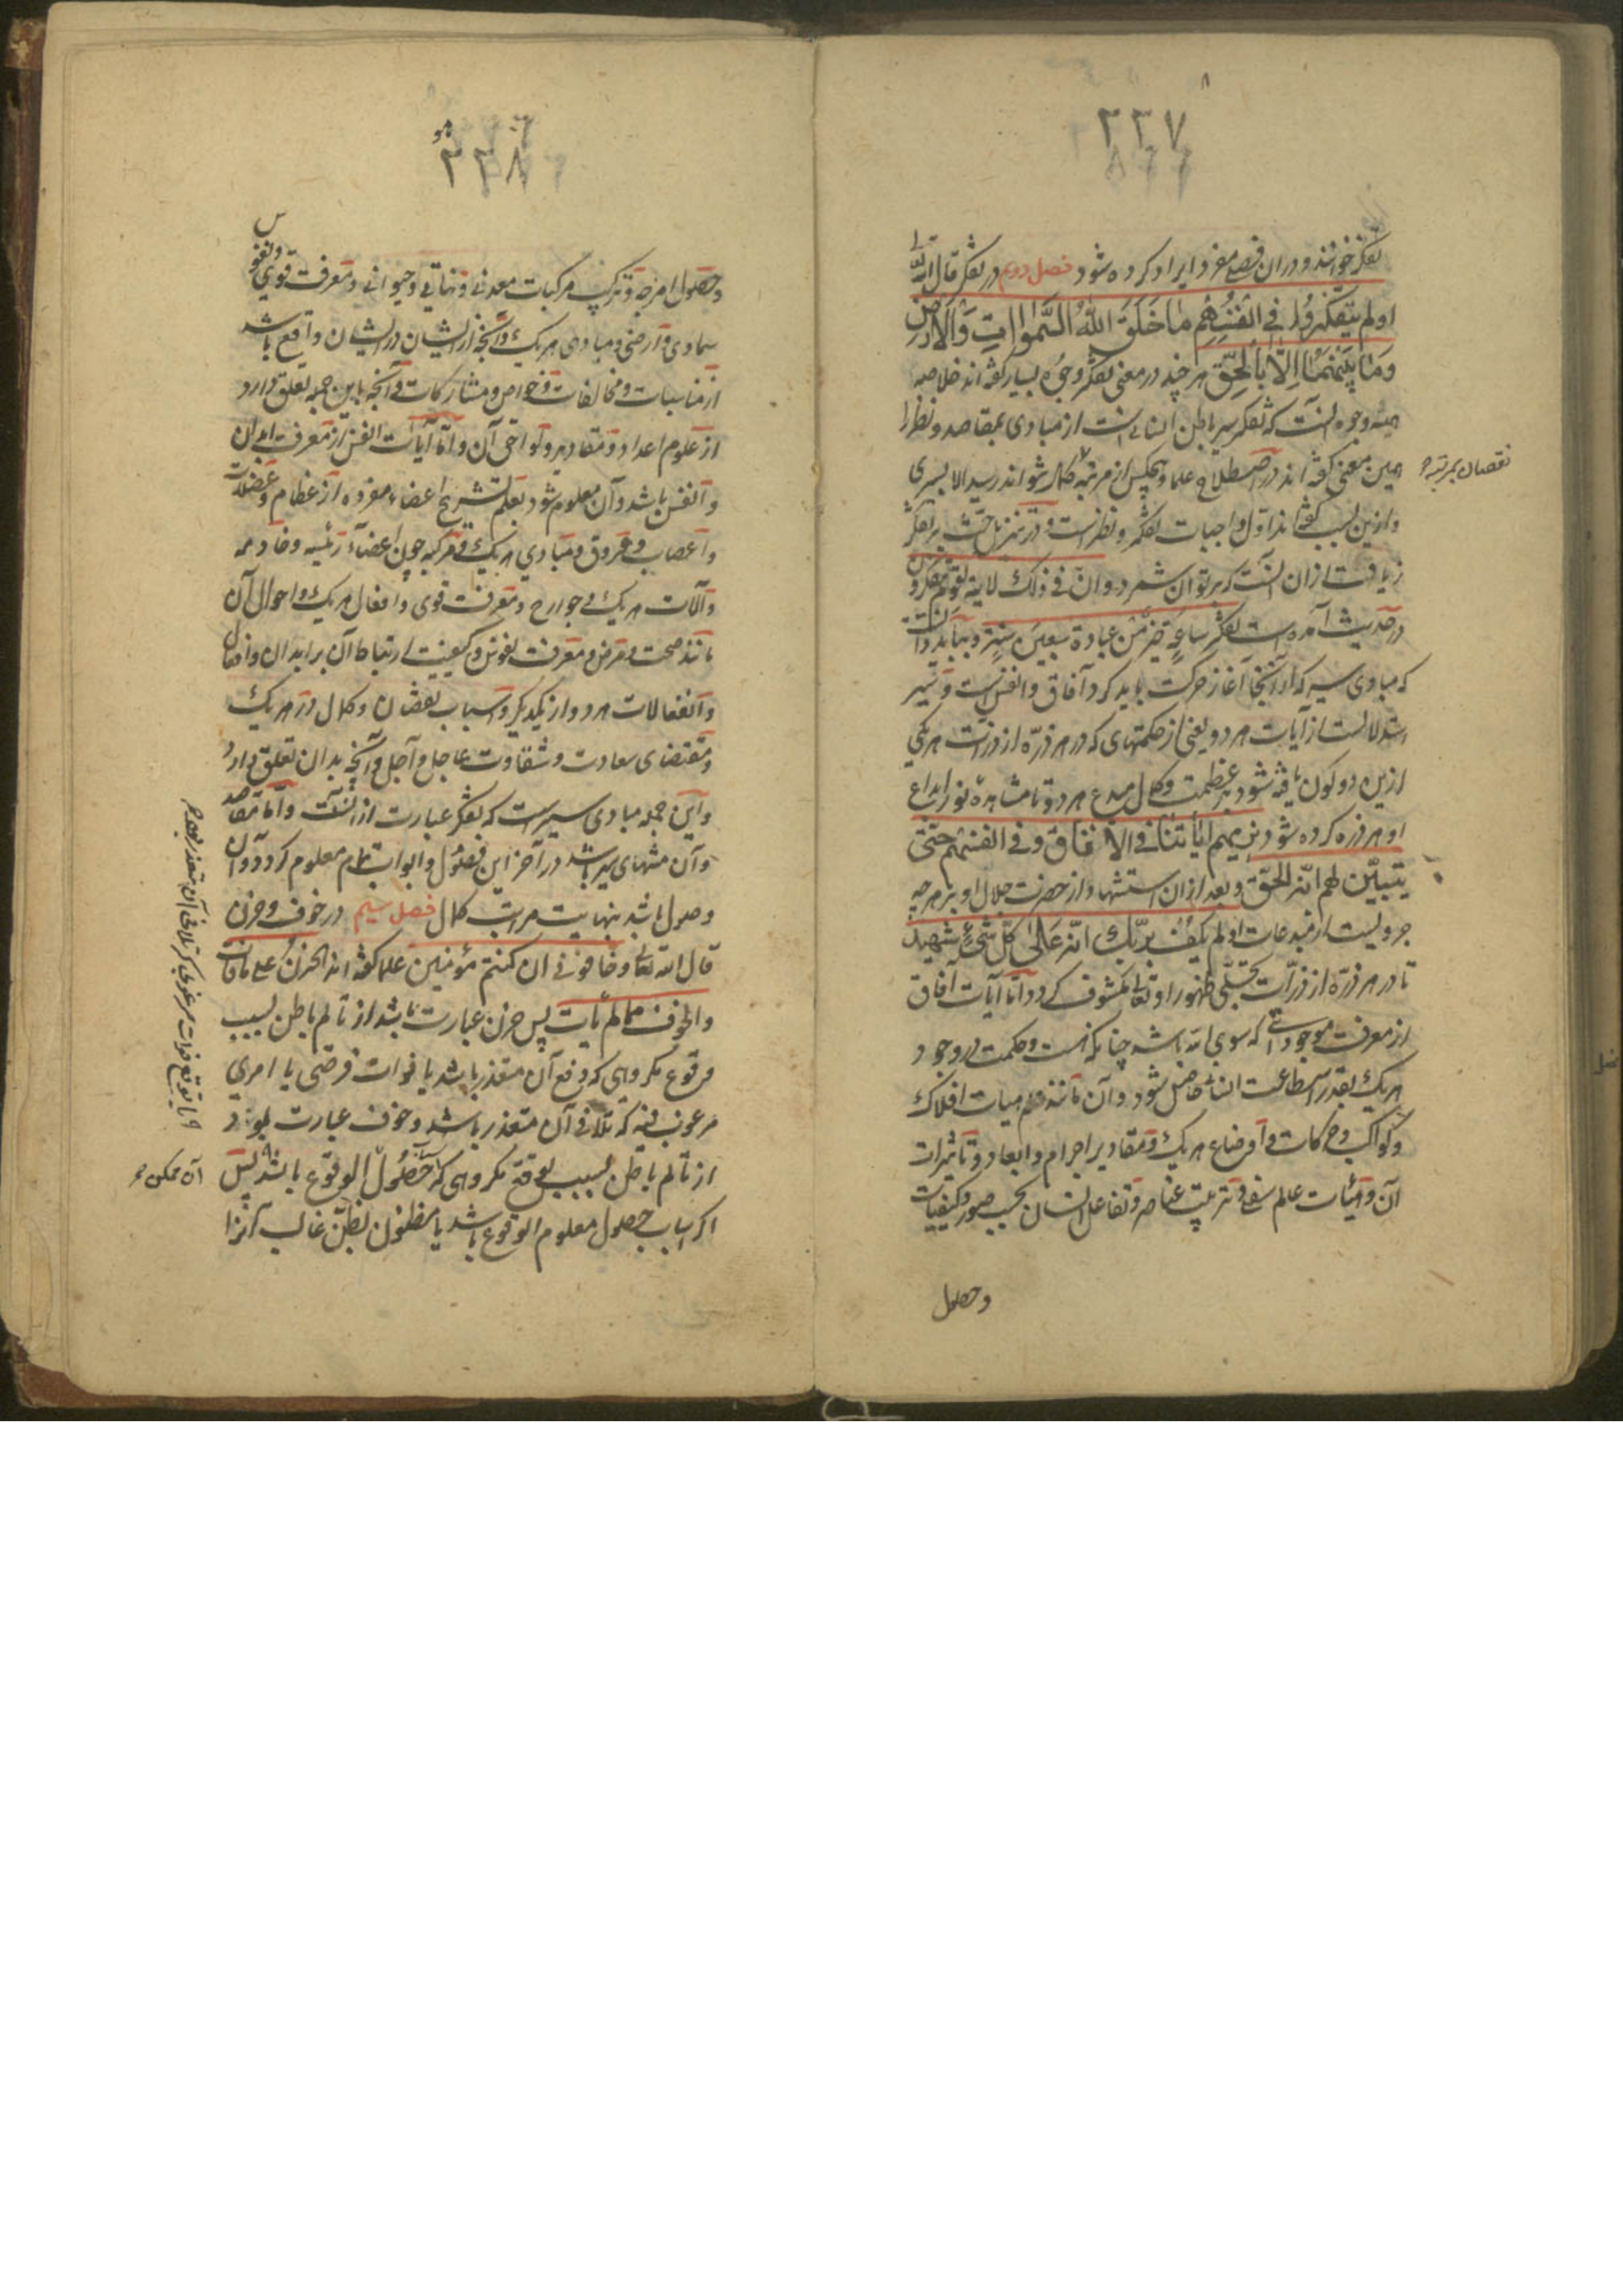 ۲۳۷
تفکر خوانند و در ان فصلی مفرد ایراد کرده شود فصل دویم در تفکر قال الله تعالی
اولم یتفکروا فی انفسهم ما خلق الله السموات والارض
وما بینهما الا بالحق هر چند در معنی تفکر وجوه بسیار گفته اند خلاصه
همه وجوه آنست که تفکر سیر باطن انسانی است از مبادی بمقاصد و نظر را
همین معنی گفته اند در اصطلاح علما و هیچکس از مرتبه بکمال نتواند رسید الا بسیری
نقصان بمرتبه
و ازین سبب گفته اند اول واجبات تفکر و نظر است و در تنزیل حث بر تفکر
زیادت از ان است که بر توان شمرد و ان فی ذلک لایة لقوم یتفکرون و
در حدیث آمده است تفکر ساعة خیر من عبادة سبعین سنة و بباید دانست
که مبادی سیر که از آنجا آغاز حرکت باید کرد آفاق و انفس است و سیر
استدلالست از آیات هر دو یعنی از حکمتهای که در هر ذره از ذرات هر یکی
ازین دو کون یافته شود بر عظمت و کمال مبدع هر دو تا مشاهده نور ابداع
او در هر ذره کرده شود سنریهم ایاتنا فی الافاق و فی انفسهم حتی
یتبین لهم انه الحق و بعد ازان استشهاد از حضرت جلال او بر هر چه
جز ویست از مبدعات اولم یکف بربک انه علی کل شیء شهید
تا در هر ذره از ذرات تجلی ظهور او تعالی مکشوف گردد و اما آیات آفاق
از معرفت موجوداتی که سوی الله باشد چنانکه هست و حکمت در وجود
هر یک بقدر استطاعت انسانی حاصل شود و آن مانند علم هیات افلاک
و کواکب و حرکات و اوضاع هر یک و مقادیر اجرام و ابعاد و تاثیرات
آن و هیئات عالم سفلی و ترتیب عناصر و تفاعل ایشان بحسب صور و کیفیات
وحصول
۲۳۸
و حصول امزجه و ترکیب مرکبات معدنی و نباتی و حیوانی و معرفت قوی و نفوس
سماوی و ارضی و مبادی هر یک و آنچه از ایشان در ایشان واقع باشد
از مناسبات و مخالفات و خواص و مشارکات و آنچه باین جمله تعلق دارد
از علوم اعداد و مقادیر و لواحق آن و اما آیات انفس از معرفت ابدان
و انفس باشد و آن معلوم شود بعلم تشریح اعضاء مفرده از عظام و عضلات
و اعصاب و عروق و مبادی هر یک و مرکبه چون اعضاء رئیسه و خادمه
و آلات هر یک و جوارح و معرفت قوی و افعال هر یک و احوال آن
مانند صحت و مرض و معرفت نفوس و کیفیت ارتباط آن بر ابدان و افعال
و انفعالات هر دو از یکدیگر و اسباب نقصان و کمال در هر یک
و مقتضای سعادت و شقاوت عاجل و آجل و آنچه بدان تعلق دارد
و این جمله مبادی سیر است که تفکر عبارت از آنست و اما مقاصد
و آن منتهای سیر باشد در آخر این فصول و ابواب تمام معلوم گردد و آن
وصول باشد بنهایت مراتب کمال فصل سیم در خوف و حزن
قال الله تعالی وخافونی ان کنتم مؤمنین علما گفته اند الحزن علی ما فات
والخوف مما لم یأت پس حزن عبارت باشد از تالم باطن بسبب
وقوع مکروهی که دفع آن متعذر باشد یا فوات فرصتی یا امری
مرغوب فیه که تلافی آن متعذر باشد و خوف عبارت بود
از تالم باطن بسبب توقع مکروهی که اسباب حصول آن ممکن الوقوع باشد پس
اگر اسباب حصول معلوم الوقوع باشد یا مظنون بظن غالب آنرا
و یا توقع فوات مرغوبی که تلافی آن متعذر بود
آن ممکن